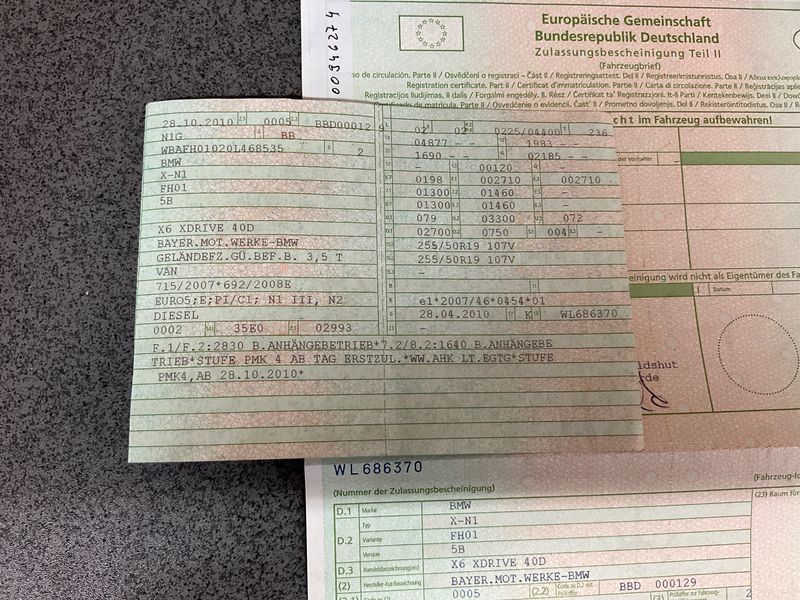 0094627 4
Europäische Gemeinschaft
Bundesrepublik Deutschland
Zulassungsbescheinigung Teil II
(Fahrzeugbrief)
so de circulación. Parte II / Osvědčení o registraci – Část II / Registreringsattest. Del II / Registreerimistunnistus. Osa II /
Registration certificate. Part II / Certificat d'immatriculation. Partie II / Carta di circolazione. Parte II /
Registracijos liudijimas. II dalis / Forgalmi engedély. II. Rész / Ċertifikat ta' Reġistrazzjoni. It-II Parti / Kentekenbewijs. Deel II /
de matrícula. Parte II / Osvedčenie o evidencii. Časť II / Prometno dovoljenje. Del II / Rekisteröintitodistus. Osa II /
cht im Fahrzeug aufbewahren!
der Vorhalter
einigung wird nicht als Eigentümer des Fa
Datum
ldshut
de
28.10.2010 0005 BBD00012 9
N1G BB
WBAFH01020L468535 2
BMW
X-N1
FH01
5B
X6 XDRIVE 40D
BAYER.MOT.WERKE-BMW
GELÄNDEFZ.GÜ.BEF.B. 3,5 T
VAN
715/2007*692/2008E
EURO5;E;PI/CI; N1 III, N2
DIESEL
0002 35E0 02993
02 02 0225/04400 236
04877 – – 1983 – –
1690 – – 02185 – –
– 00120 –
0198 002710 002710
01300 01460 –
01300 01460 –
079 03300 072
02700 0750 004 –
255/50R19 107V
255/50R19 107V
–
–
e1*2007/46*0454*01
28.04.2010 K WL686370
–
F.1/F.2:2830 B.ANHÄNGEBETRIEB*7.2/8.2:1640 B.ANHÄNGEBE
TRIEB*STUFE PMK 4 AB TAG ERSTZUL.*WW.AHK LT.EGTG*STUFE
PMK4,AB 28.10.2010*
WL686370
(Nummer der Zulassungsbescheinigung)
(Fahrzeug-
(23) Raum für
D.1 Marke BMW
Typ X-N1
D.2 Variante FH01
Version 5B
D.3 Handelsbezeichnung(en) X6 XDRIVE 40D
(2) Hersteller-Kurzbezeichnung BAYER.MOT.WERKE-BMW
0005 (2.2) BBD 000129
2